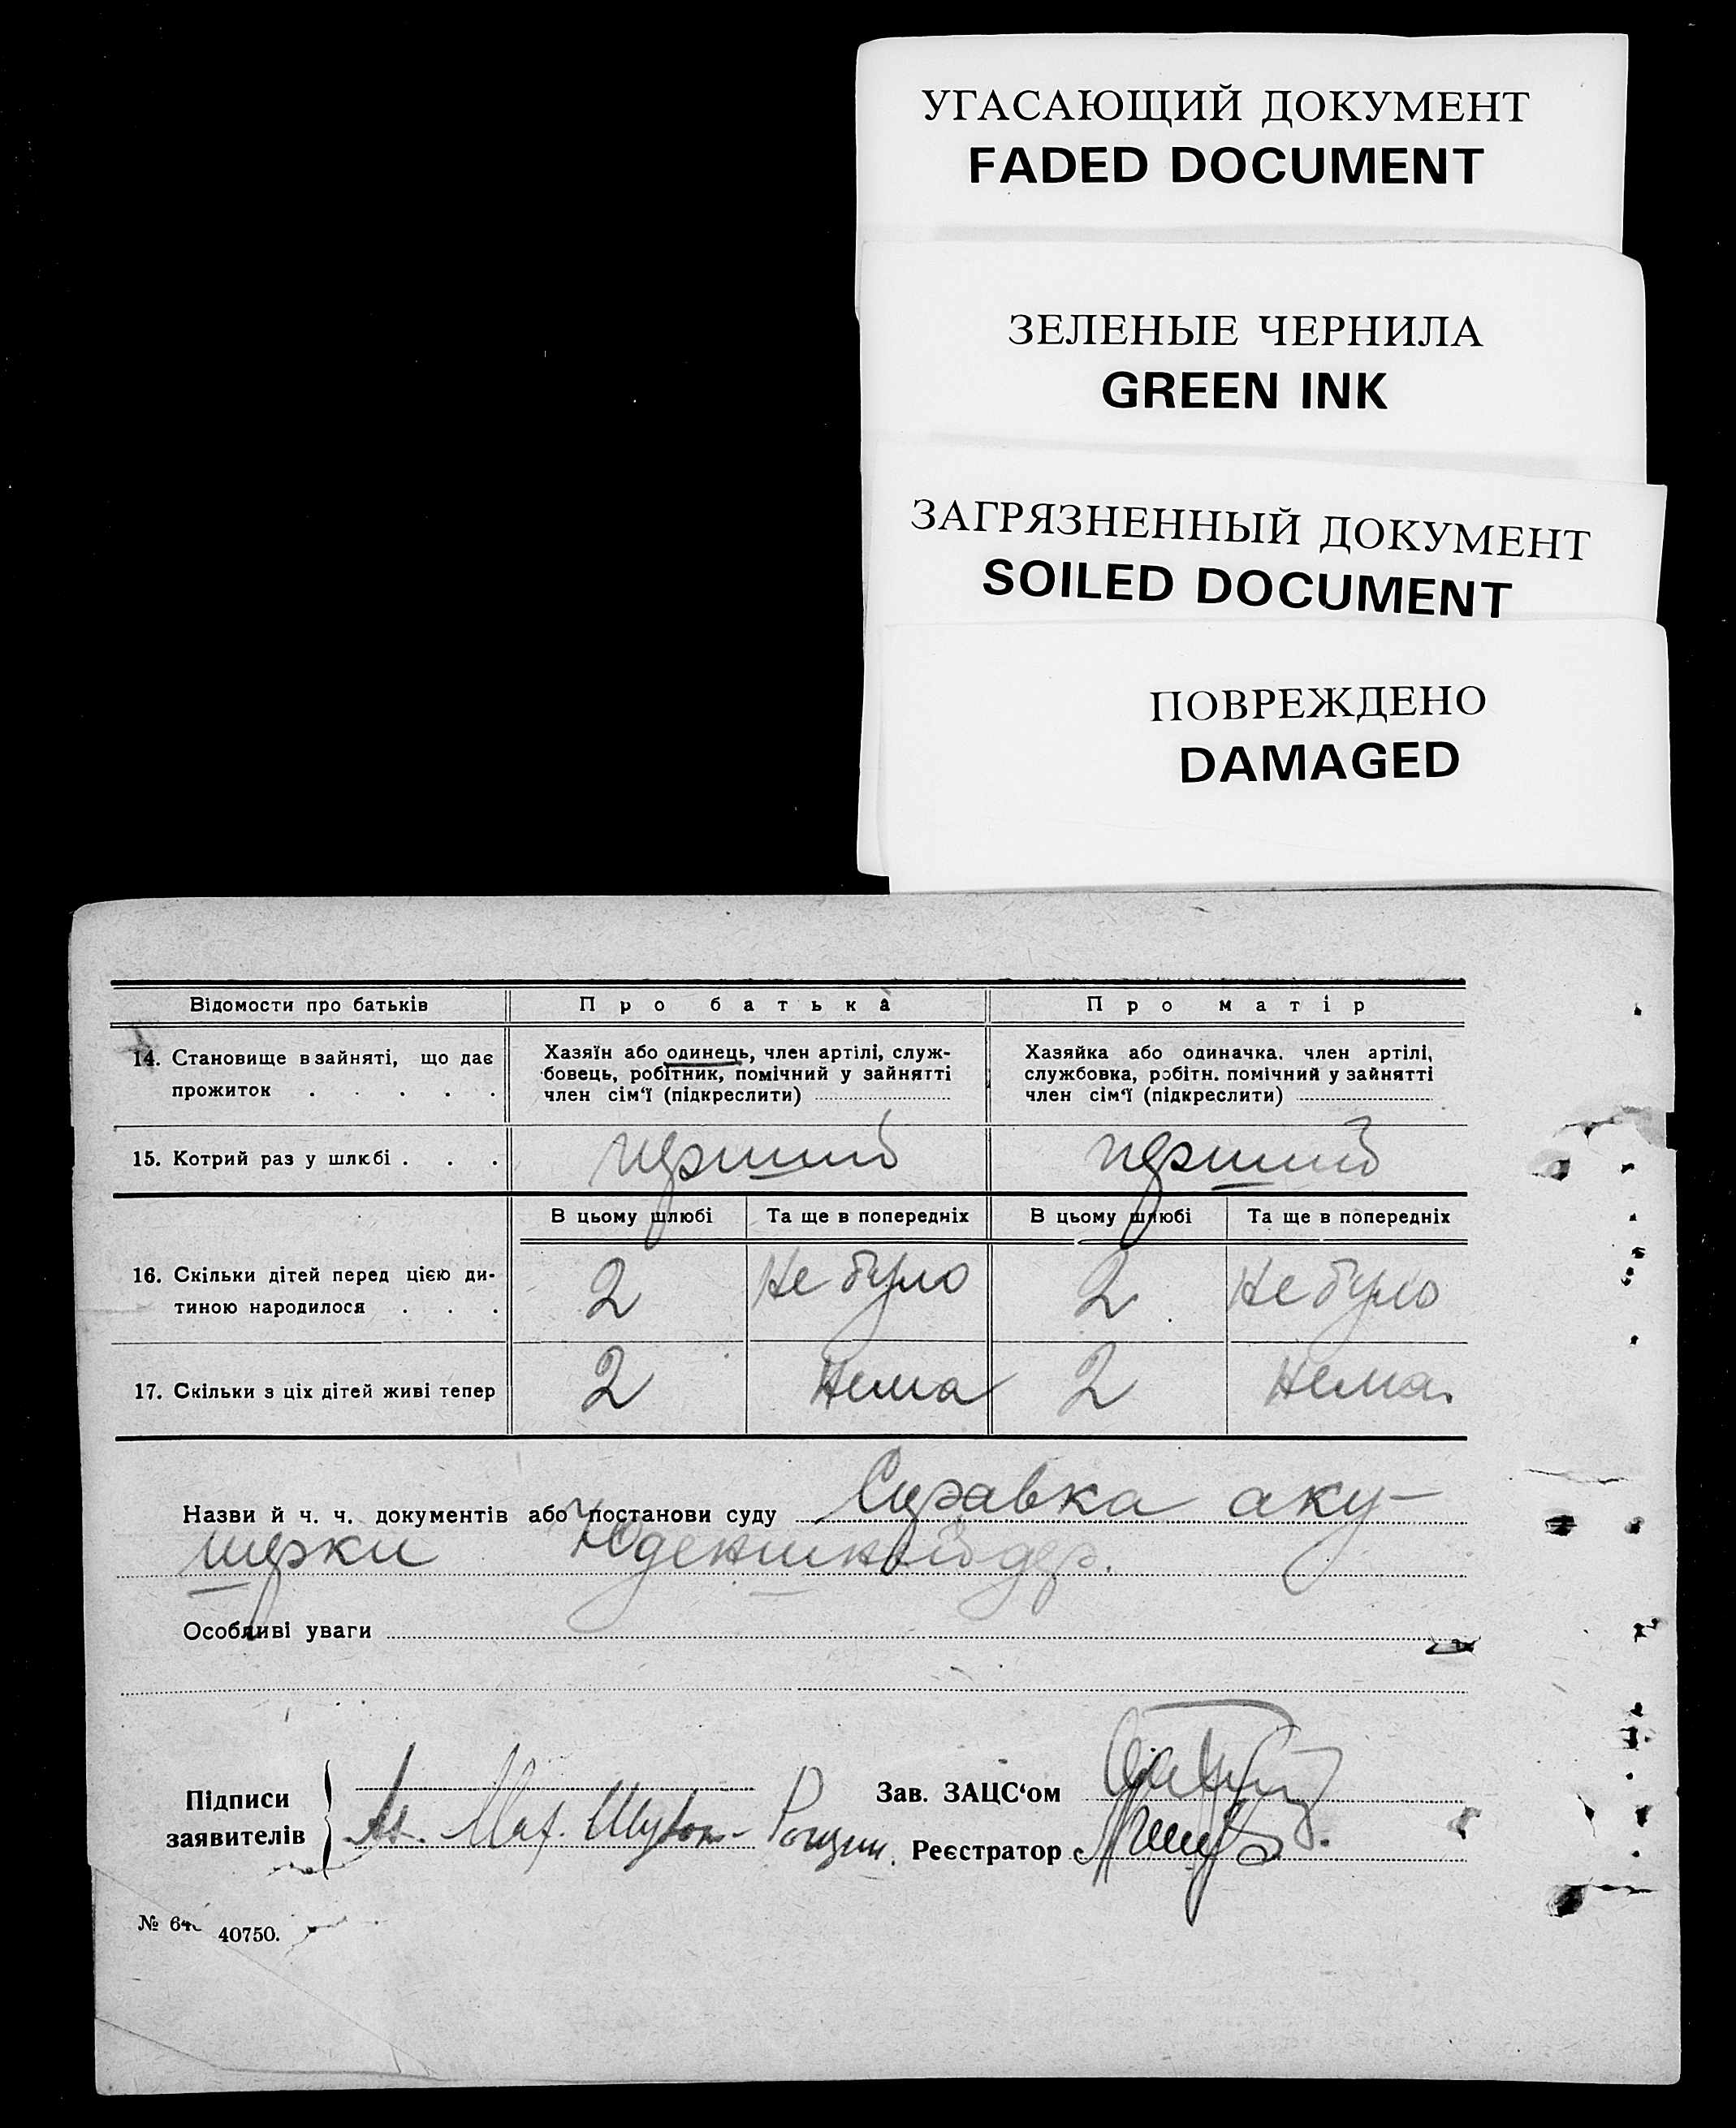 УГАСАЮЩИЙ ДОКУМЕНТ
FADED DOCUMENT
ЗЕЛЕНЫЕ ЧЕРНИЛА
GREEN INK
ЗАГРЯЗНЕННЫЙ ДОКУМЕНТ
SOILED DOCUMENT
ПОВРЕЖДЕНО
DAMAGED
Відомости про батьків Про батька Про матір
14. Становище в зайняті, що дає прожиток . . . . .
Хазяїн або одинець, член артілі, служ-
бовець, робітник, помічний у зайнятті
член сім‘ї (підкреслити)
Хазяйка або одиначка. член артілі,
службовка, робітн. помічний у зайнятті
член сім‘ї (підкреслити)
15. Котрий раз у шлюбі . . . перший перший
В цьому шлюбі Та ще в попередніх В цьому шлюбі Та ще в попередніх
16. Скільки дітей перед цією ди-
тиною народилося . . . 2 Не було 2 Не було
17. Скільки з ціх дітей живі тепер 2 Нема 2 Нема.
Назви й ч. ч. документів або постанови суду Справка аку-
шерки
Особливі уваги
Підписи
заявителів
Зав. ЗАЦС‘ом
Реєстратор
№ 64
40750.